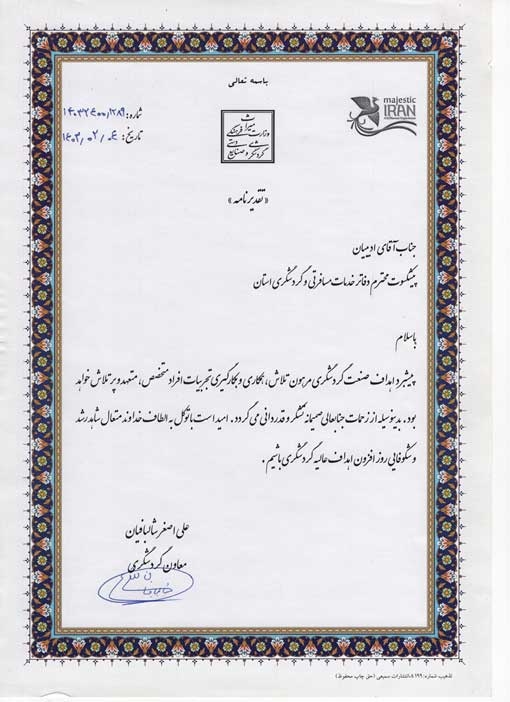 باسمه تعالی
majestic
IRAN
شماره: ۱۴۰۳۲۴۰۰/۱۲۸۹
تاریخ: ۱۴۰۳/۰۲/۰۴
وزارت میراث فرهنگی
گردشگری و صنایع دستی
«تقدیرنامه»
جناب آقای ادیبیان
پیشکسوت محترم دفاتر خدمات مسافرتی و گردشگری استان
باسلام
پیشبرد اهداف صنعت گردشگری مرهون تلاش، همکاری و بکارگیری تجربیات افراد متخصص، متعهد و پر تلاش خواهد
بود. بدینوسیله از زحمات جنابعالی صمیمانه تشکر و قدردانی می گردد. امید است با توکل به الطاف خداوند متعال شاهد رشد
و شکوفایی روز افزون اهداف عالیه گردشگری باشیم.
علی اصغر شالبافیان
معاون گردشگری
تذهیب شماره: ۸۱۹۹ انتشارات سمیعی (حق چاپ محفوظ)